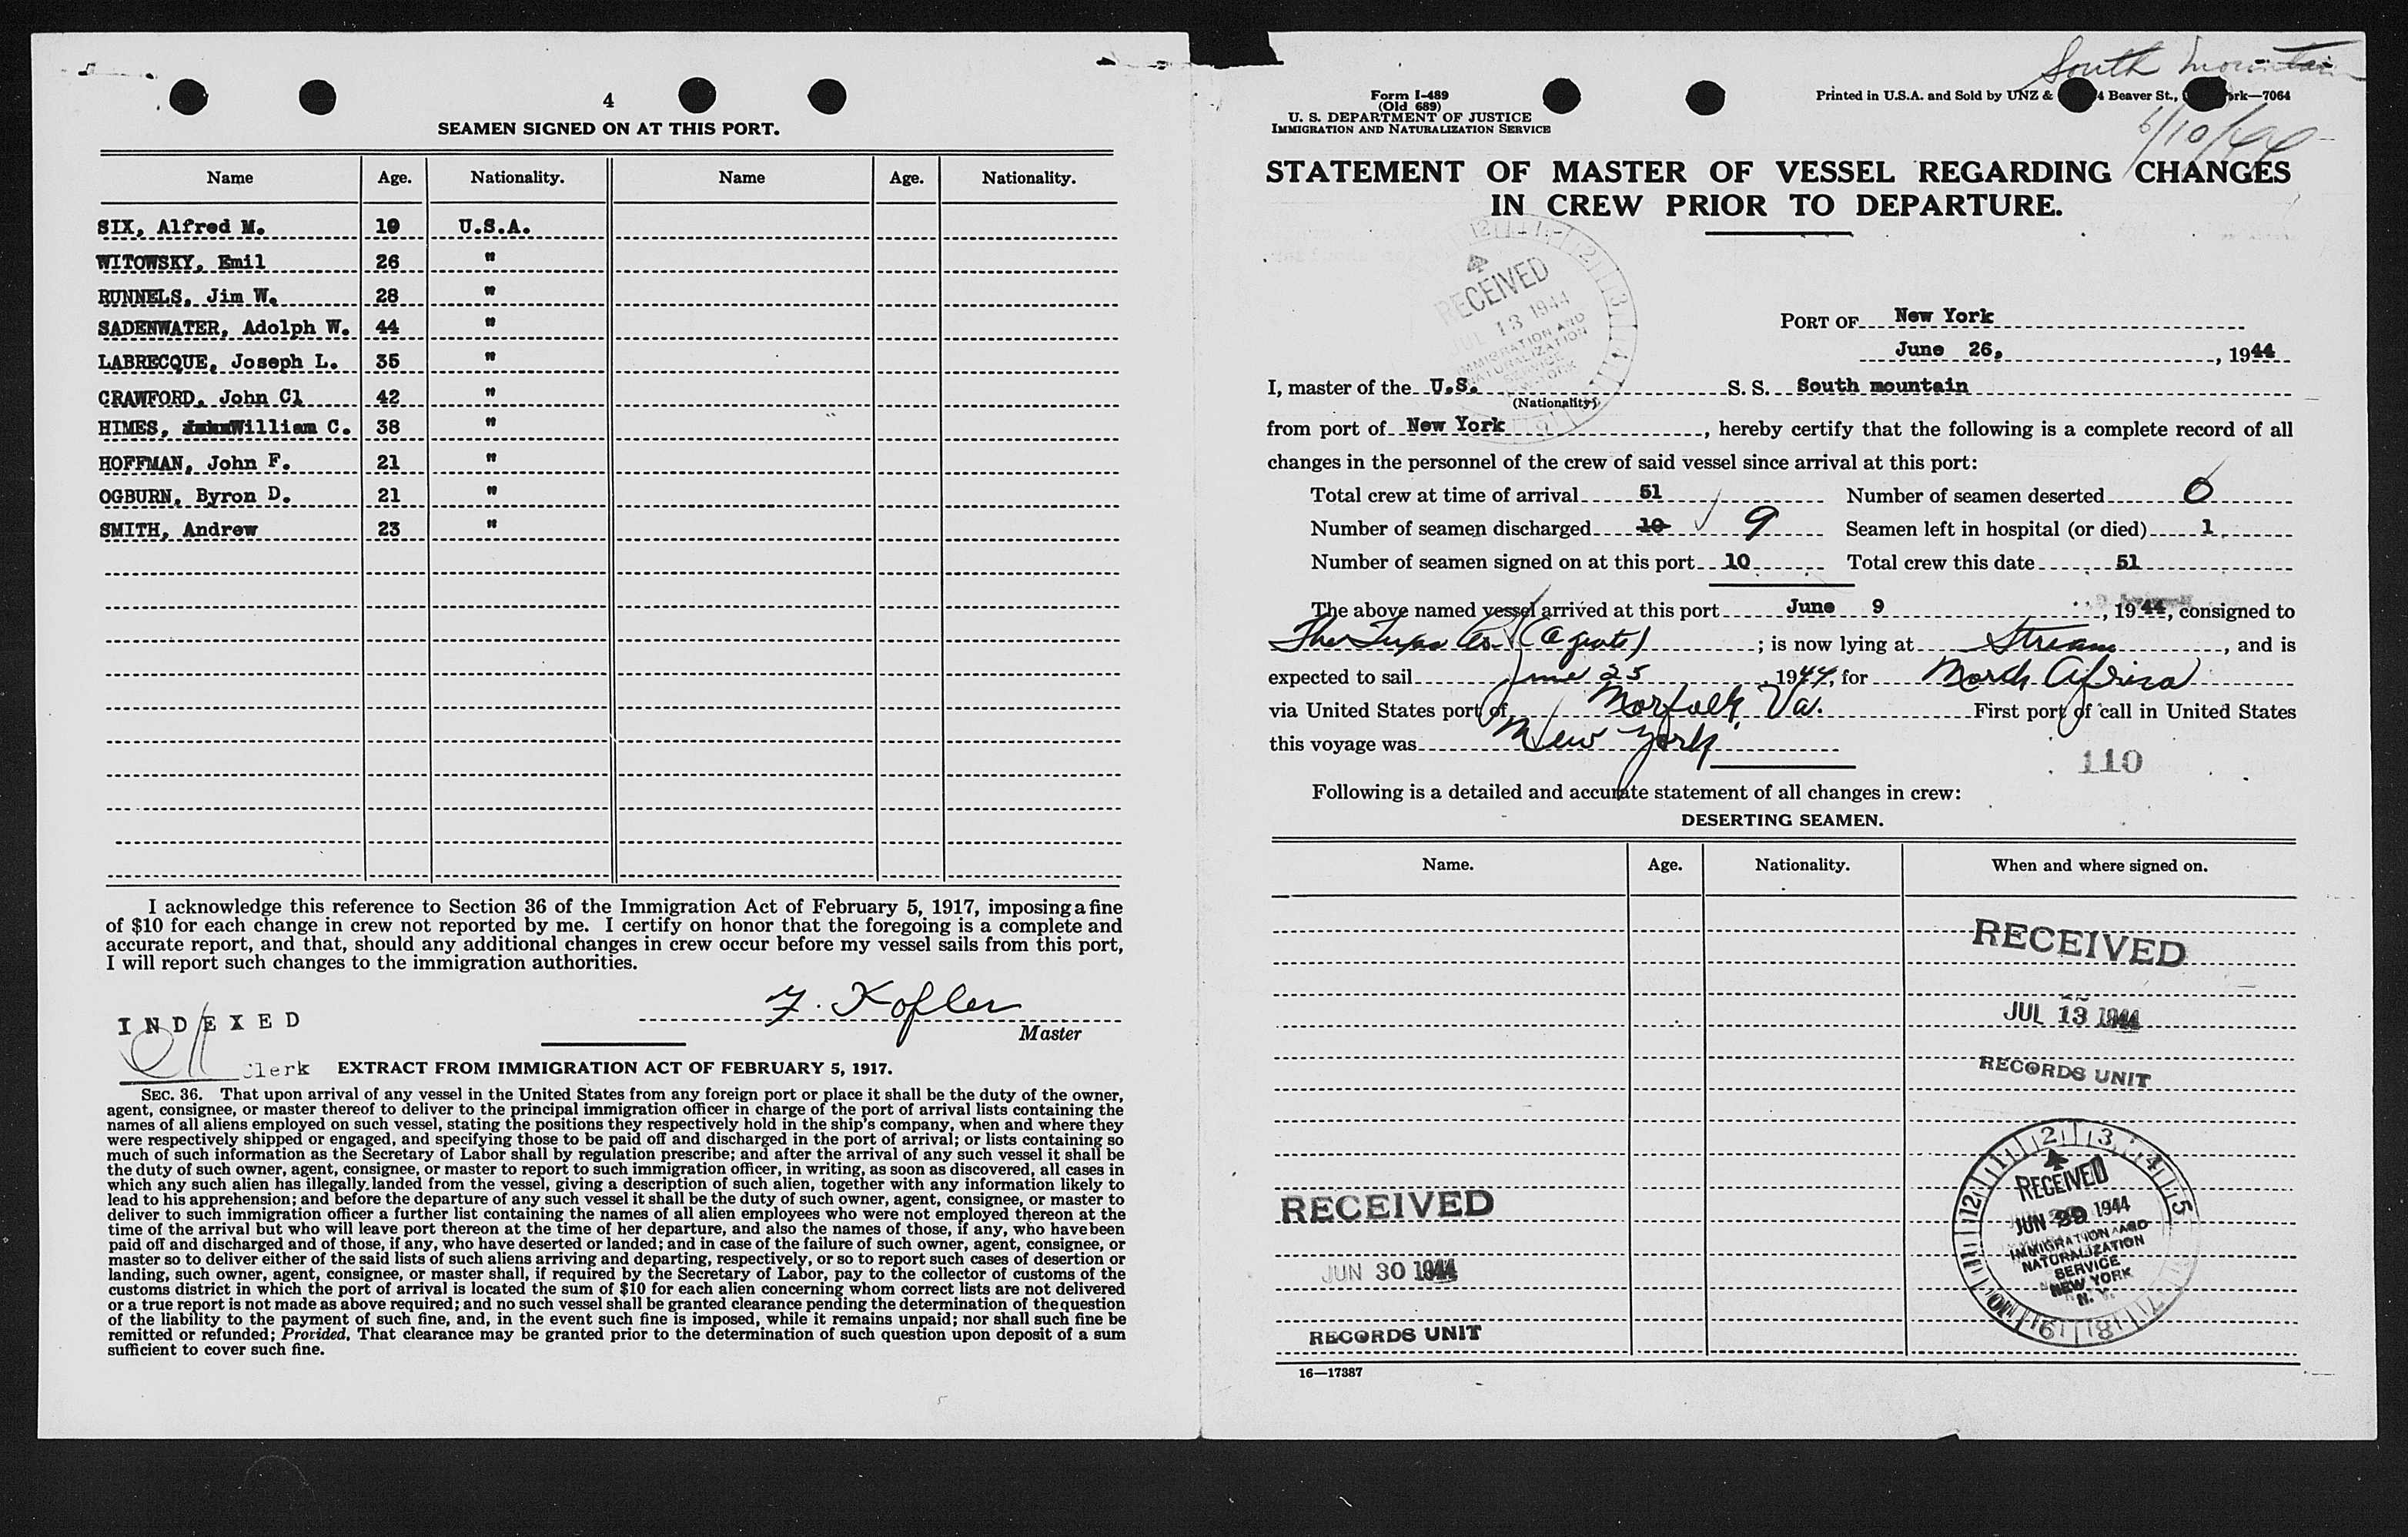 4
SEAMEN SIGNED ON AT THIS PORT.
Name Age. Nationality. Name Age. Nationality.
SIX, Alfred M. 19 U.S.A.
WITOWSKY, Emil 26 "
RUNNELS, Jim W. 28 "
SADENWATER, Adolph W. 44 "
LABRECQUE, Joseph L. 35 "
CRAWFORD, John Cl 42 "
HIMES, William C. 38 "
HOFFMAN, John F. 21 "
OGBURN, Byron D. 21 "
SMITH, Andrew 23 "
I acknowledge this reference to Section 36 of the Immigration Act of February 5, 1917, imposing a fine
of $10 for each change in crew not reported by me. I certify on honor that the foregoing is a complete and
accurate report, and that, should any additional changes in crew occur before my vessel sails from this port,
I will report such changes to the immigration authorities.
F. Kofler
Master
INDEXED
Clerk
EXTRACT FROM IMMIGRATION ACT OF FEBRUARY 5, 1917.
SEC. 36. That upon arrival of any vessel in the United States from any foreign port or place it shall be the duty of the owner,
agent, consignee, or master thereof to deliver to the principal immigration officer in charge of the port of arrival lists containing the
names of all aliens employed on such vessel, stating the positions they respectively hold in the ship's company, when and where they
were respectively shipped or engaged, and specifying those to be paid off and discharged in the port of arrival; or lists containing so
much of such information as the Secretary of Labor shall by regulation prescribe; and after the arrival of any such vessel it shall be
the duty of such owner, agent, consignee, or master to report to such immigration officer, in writing, as soon as discovered, all cases in
which any such alien has illegally landed from the vessel, giving a description of such alien, together with any information likely to
lead to his apprehension; and before the departure of any such vessel it shall be the duty of such owner, agent, consignee, or master to
deliver to such immigration officer a further list containing the names of all alien employees who were not employed thereon at the
time of the arrival but who will leave port thereon at the time of her departure, and also the names of those, if any, who have been
paid off and discharged and of those, if any, who have deserted or landed; and in case of the failure of such owner, agent, consignee, or
master so to deliver either of the said lists of such aliens arriving and departing, respectively, or so to report such cases of desertion or
landing, such owner, agent, consignee, or master shall, if required by the Secretary of Labor, pay to the collector of customs of the
customs district in which the port of arrival is located the sum of $10 for each alien concerning whom correct lists are not delivered
or a true report is not made as above required; and no such vessel shall be granted clearance pending the determination of the question
of the liability to the payment of such fine, and, in the event such fine is imposed, while it remains unpaid; nor shall such fine be
remitted or refunded; Provided, That clearance may be granted prior to the determination of such question upon deposit of a sum
sufficient to cover such fine.
South Mountain
6/10/44
Form I-489
(Old 689)
U. S. DEPARTMENT OF JUSTICE
IMMIGRATION AND NATURALIZATION SERVICE
Printed in U.S.A. and Sold by UNZ & 4 Beaver St., ork—7064
STATEMENT OF MASTER OF VESSEL REGARDING CHANGES
IN CREW PRIOR TO DEPARTURE.
RECEIVED
JUL 13 1944
IMMIGRATION AND
NATURALIZATION
SERVICE
NEW YORK
PORT OF New York
June 26, , 1944
I, master of the U.S. S. S. South mountain
(Nationality)
from port of New York , hereby certify that the following is a complete record of all
changes in the personnel of the crew of said vessel since arrival at this port:
Total crew at time of arrival 51 Number of seamen deserted 0
Number of seamen discharged 10 9 Seamen left in hospital (or died) 1
Number of seamen signed on at this port 10 Total crew this date 51
The above named vessel arrived at this port June 9 , 1944, consigned to
The Texas Co. (Agents) ; is now lying at Stream , and is
expected to sail June 25 , 1944, for North Africa
via United States port of Norfolk, Va. First port of call in United States
this voyage was New York
110
Following is a detailed and accurate statement of all changes in crew:
DESERTING SEAMEN.
Name. Age. Nationality. When and where signed on.
RECEIVED
JUL 13 1944
RECORDS UNIT
RECEIVED
JUN 30 1944
RECORDS UNIT
RECEIVED
JUN 29 1944
IMMIGRATION AND
NATURALIZATION
SERVICE
NEW YORK
N. Y.
16—17387